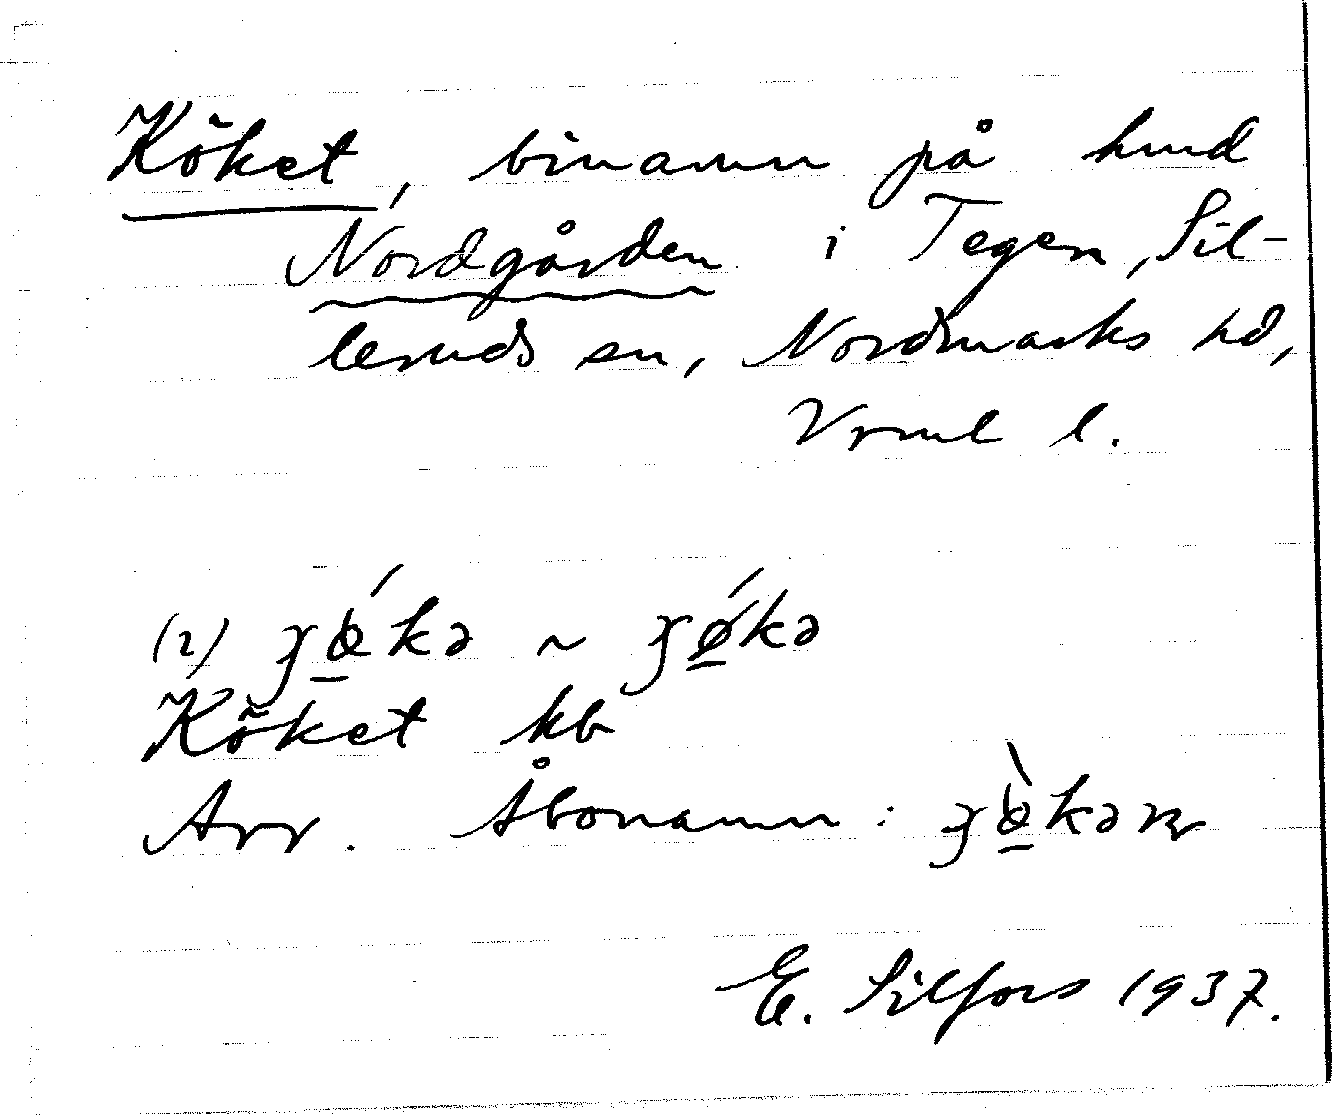 Köket, binamn på hmd
Nordgården i Tegen, Sil-
leruds sn, Nordmarks hd,
Vrml l.
(2) kə ~ kə
Köket kb
Arr. Åbonamn:
E. Silfors 1937.